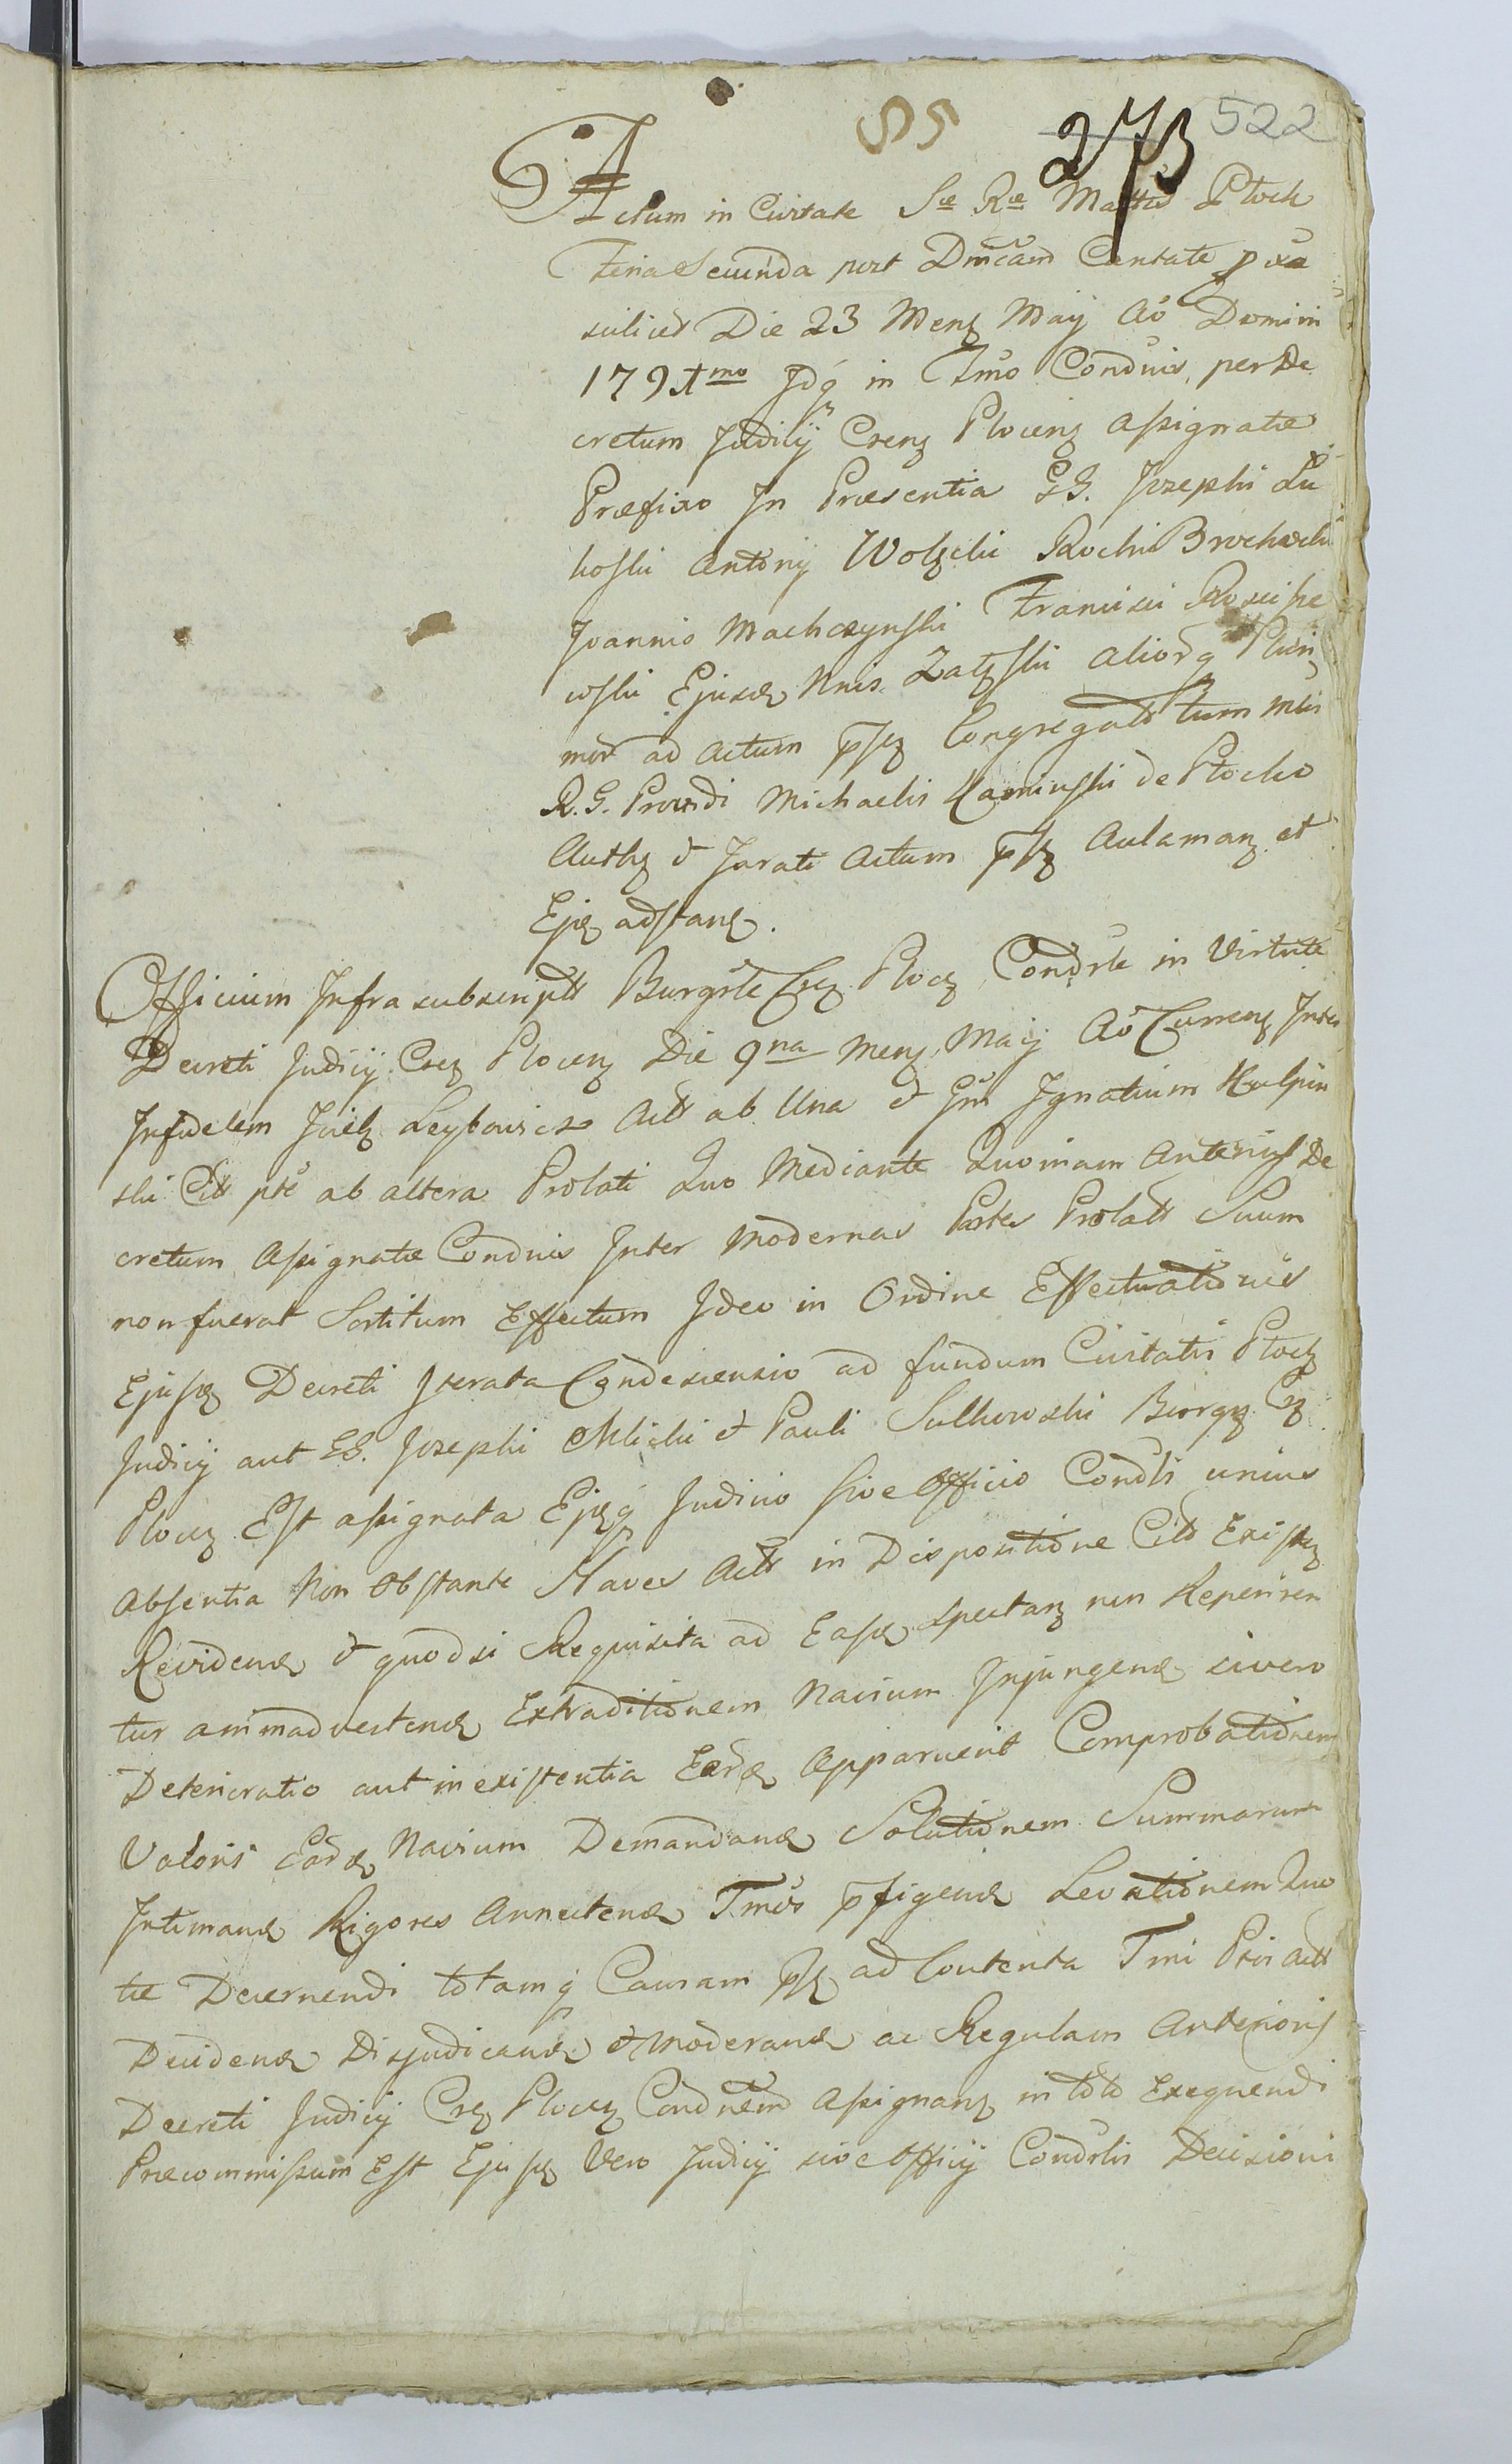 85 273 522
Actum in Civitate Sæ Ræ Mattis Płock
Feria Secunda post Dnicam Cantate pxa
scilicet Die 23 Menz Maij Ao Domini
1791mo Idq in Tmo Condnis, per De
cretum Judicij Crenz Plocenz assignatæ
Præfixo In Præsentia GG. Josephi Łu
koski Antonij Wolski Rochi Brochocki
Joannis Machczynski Francisci Roscisze
wski Ejusd Nnis Zalęski aliorq Pluri
mor ad actum psz Congregatt tum Mtris
R. G. Provdi Michaelis Kaminski de Płocko
Authz et Jurati actum psz Aulamanz et
Ejq adstanz.
Officium Infrasubscriptt Burgrle Crz Plocz Condrle in Virtute
Decreti Judicij Crez Plocenz Die 9na Menz Maij Ao Currenz Inter
Infidelem Leybowicz Act ab Una et Gm Ignatium Karpin
ski Citt pte ab altera Prolati Quo Mediante Quoniam Anterius De
cretum assignatæ Condnis Inter Modernas Partes Prolatt Suum
non fuerat Sortitum Effectum Ideo in Ordine Effectuationis
Ejusz Decreti Iterata Condescensio ad fundum Civitatis Płock
Judicij aut GG. Josephi Mlicki et Pauli Sulkowski Burgz Crz
Plocz Est assignata Ejzq Judicio sive Officio Condli unius
Absentia Non Obstante Naves Act in Dispositione Citt Existz
Revidend et quod si Requisita ad Easd spectanz non Reperiren
tur animadvertend Extraditionem Navium Injungend si vero
Deterioratio aut inexistentia Eard Apparuerit Comprobationem
Valoris Eard Navium Demandand Solutionem Summarum
Intimand Rigores Annectend Tmos pfigend Levationem Quo
tæ Decernendi totamq Causam psz ad Contenta Tmi Ptis Act
Decidend Disjudicand et Moderand ac Regulam Anterioris
Decreti Judicij Crz Plocz Condnem assignanz in toto Exequendi
Præcommissum Est Ejusz Vero Judicij sive Officij Condrlis Decisioni